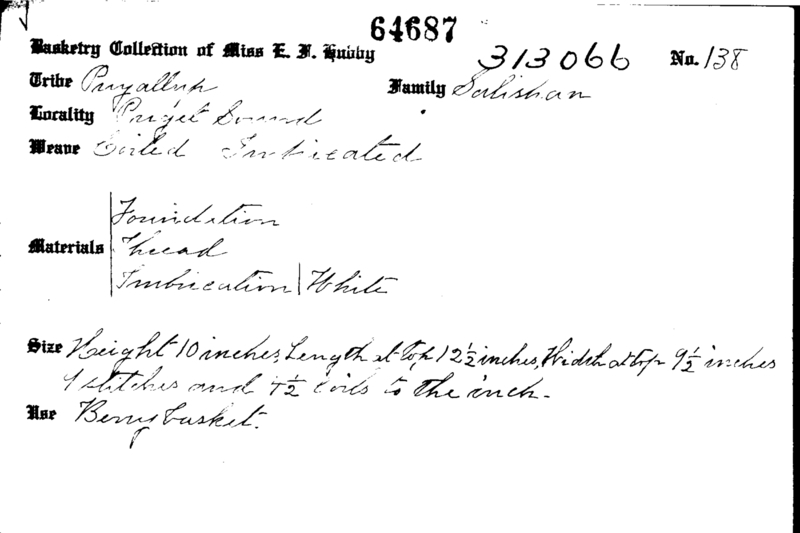 64687
Basketry Collection of Miss E. F. Hubby 313066 No. 138
Tribe Puyallup Family Salishan
Locality Puget Sound
Weave Coiled Imbricated
Foundation
Materials Thread
Imbrication White
Size Height 10 inches, Length at top 12½ inches, Width at top 9½ inches
stitches and 4½ coils to the inch.
Use Berry basket.